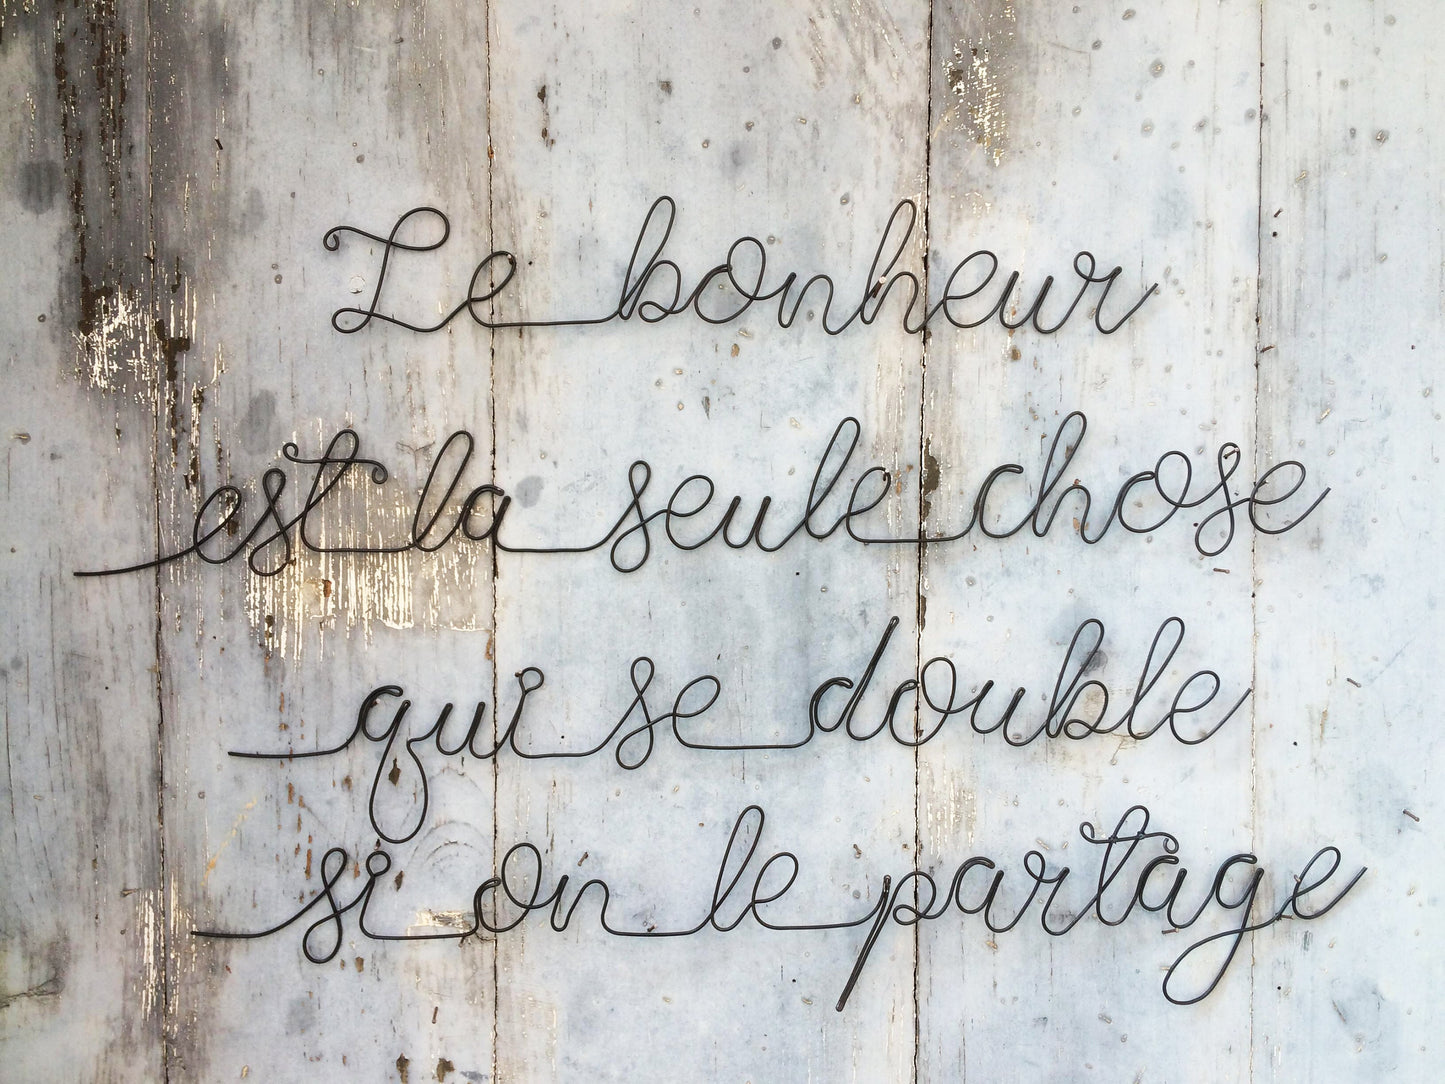 Le bonheur
est la seule chose
qui se double
si on le partage